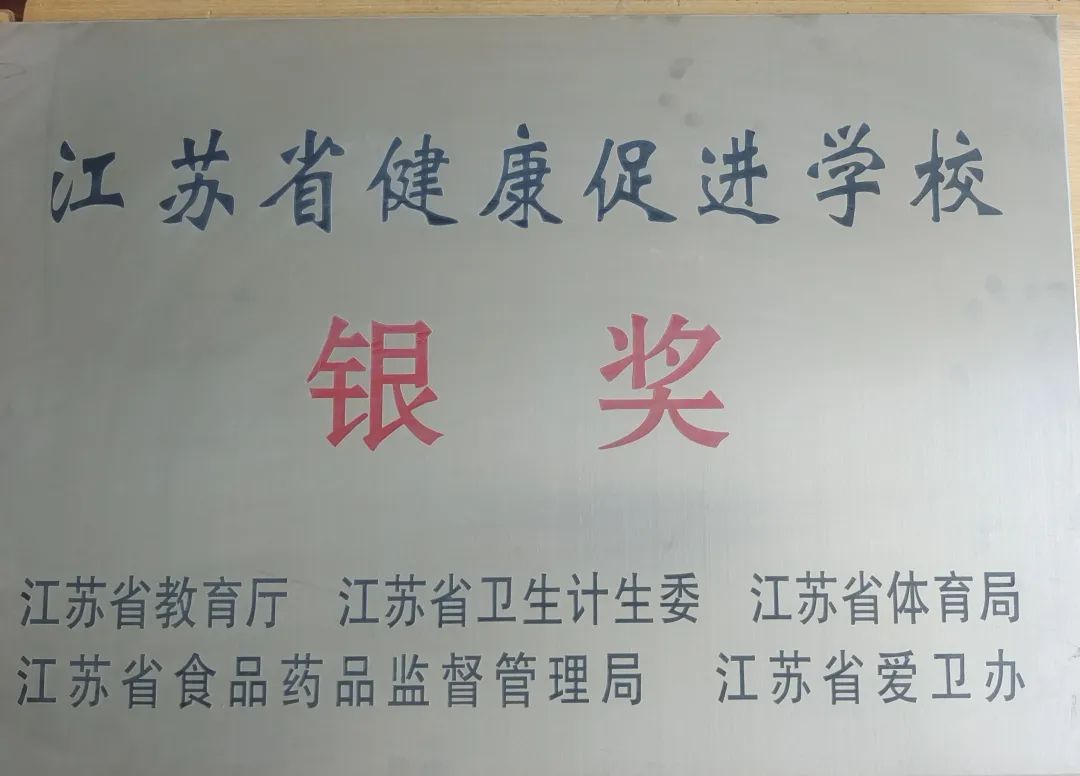 江苏省健康促进学校
银奖
江苏省教育厅 江苏省卫生计生委 江苏省体育局
江苏省食品药品监督管理局 江苏省爱卫办